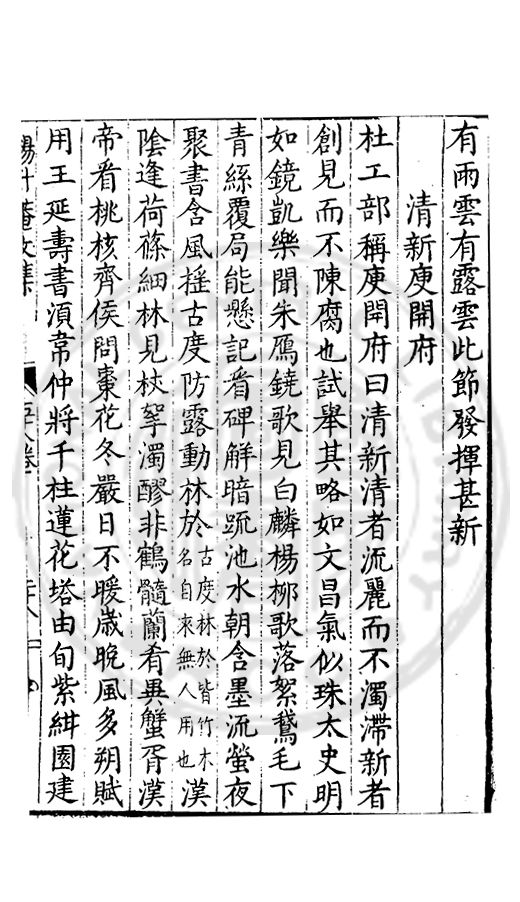 有雨雲有露雲此節發揮甚新
清新庾開府
杜工部稱庾開府曰清新清者流麗而不濁滯新者
創見而不陳腐也試舉其略如文昌氣似珠太史明
如鏡凱樂聞朱鴈鐃歌見白麟楊柳歌落絮鵝毛下
青絲覆局能懸記看碑解暗䟽池水朝含墨流螢夜
聚書含風摇古度防露動林於古度林於皆竹木名自來無人用也漢
陰逢荷蓧緗林見校挐濁醪非鶴髓蘭肴異蟹胥漢
帝看桃核齊侯問棗花冬嚴日不暖歳晚風多朔賦
用王延壽書湏韋仲將千柱蓮花塔由旬紫紺園建
楊升菴文集 五八卷